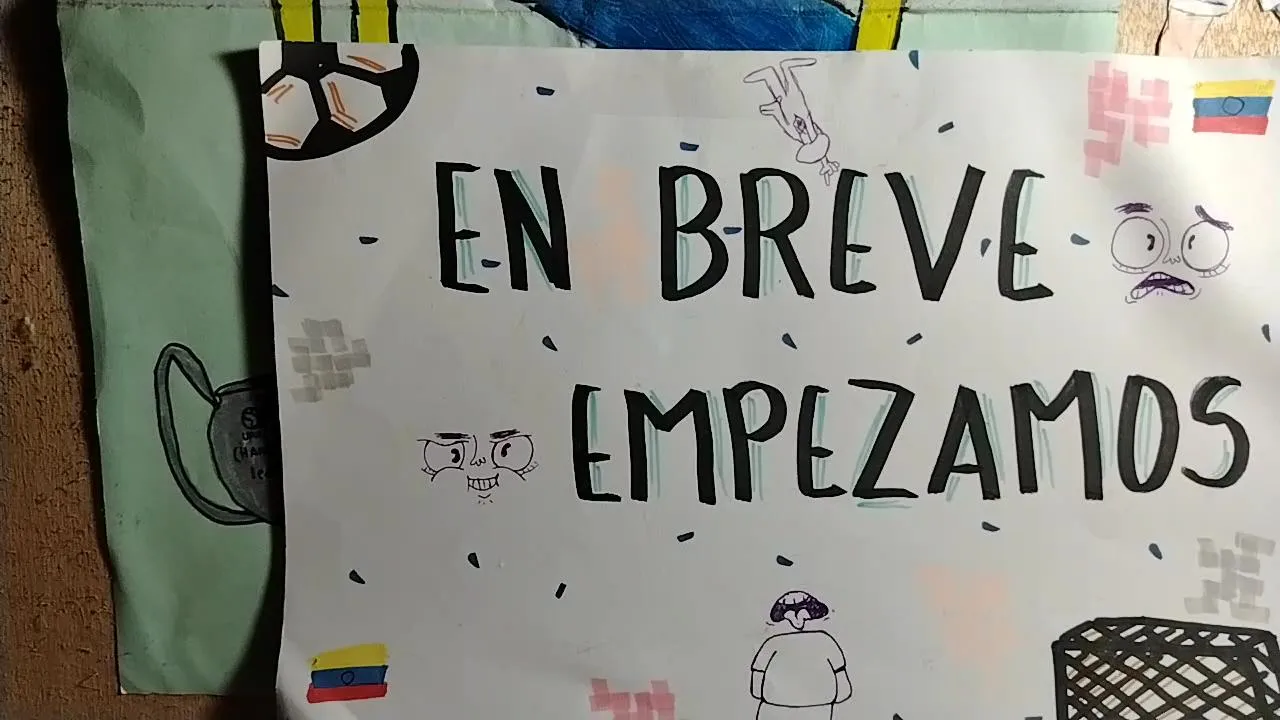 EN BREVE
EMPEZAMOS